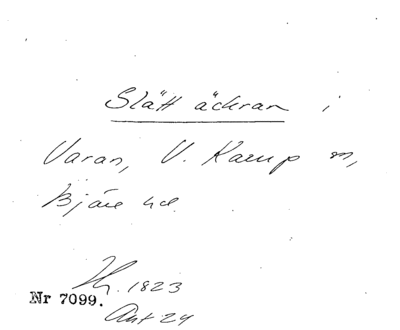 Slätt äckran i
Varan, V. Karup sn,
Bjäre hd.
Th. 1823
Nr 7099.
Ant 24